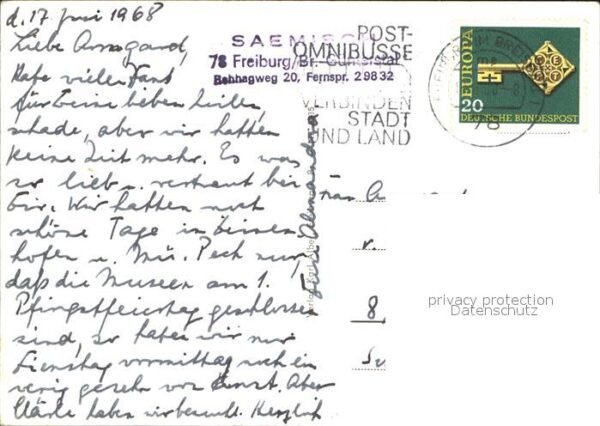 d. 17. Juni 1968
Liebe Armgard,
Habe vielen Dank
für Deine lieben Zeilen,
schade, aber wir hatten
keine Zeit mehr. Es war
so lieb u. vertraut bei
Dir. Wir hatten noch
schöne Tage in
hofen u. Mü. Pech nur,
daß die Museen am 1.
Pfingstfeiertag geschlossen
sind, so haben wir nur
Dienstag vormittag noch ein
wenig gesehn von Kunst. Aber
haben wir besucht. Herzlich
Deine
SAEMISCH
78 Freiburg/Br.-Günterstal
Rehhagweg 20, Fernspr. 29832
POST-
OMNIBUSSE
VERBINDEN
STADT
UND LAND
FREIBURG IM BREISGAU
78
EUROPA
CEPT
20
DEUTSCHE BUNDESPOST
Verlag Karl
Frau
8
privacy protection
Datenschutz